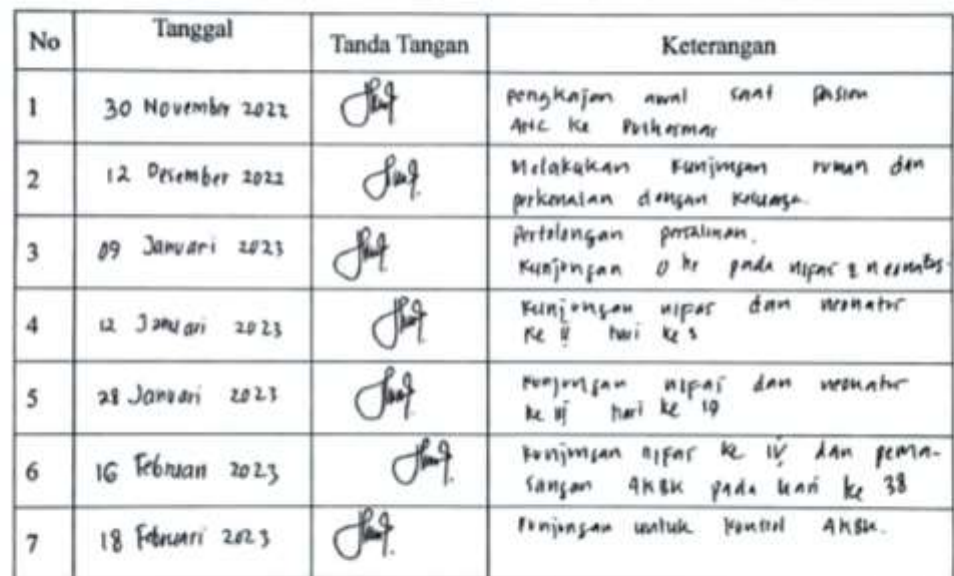 No Tanggal Tanda Tangan Keterangan
1 30 November 2022 pengkajan awal saat pasien
ANC ke Puskesmas
2 12 Desember 2022 Melakukan Kunjungan rumah dan
perkenalan dengan keluarga.
3 09 Januari 2023 Pertolongan persalinan.
Kunjungan 0 hr pada nifas & neonatus.
4 12 Januari 2023 Kunjungan nifas dan neonatus
ke II hari ke 3
5 28 Januari 2023 Kunjungan nifas dan neonatus
ke III hari ke 19
6 16 Februari 2023 kunjungan nifas ke IV dan pema-
sangan AKBK pada hari ke 38
7 18 Februari 2023 Kunjungan untuk kontrol AKBK.